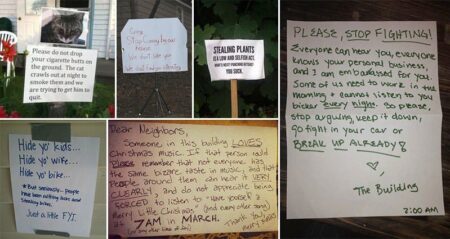 Please do not drop
your cigarette butts on
the ground. The cat
crawls out at night to
smoke them and we
are trying to get him to
quit.
Greg,
Stop coming by our
house
We don't like you
STEALING PLANTS
IS A LOW AND SELFISH ACT.
YOU SUCK.
PLEASE, STOP FIGHTING!
Everyone can hear you, everyone
knows your personal business
and I am embarrassed for you.
Some of us need to work in the
morning & cannot listen to you
bicker every night. So please,
stop arguing, keep it down,
go fight in your car or
BREAK UP ALREADY!
The Building
2:00 AM
Hide yo' kids...
Hide yo' wife...
Hide yo' bike...
* But seriously... people
have been
stealing bikes.
Just a little F.Y.I.
Dear Neighbors,
Someone in this building LOVES
Christmas music. If that person could
please remember that not everyone has
the same bizarre taste in music, and that
people around them can hear it VERY
CLEARLY, and do not appreciate being
FORCED to listen to "Have yourself a
Merry Little Christmas" (and every other song)
at 7AM in MARCH.
(or any other time of day)
Thank you!